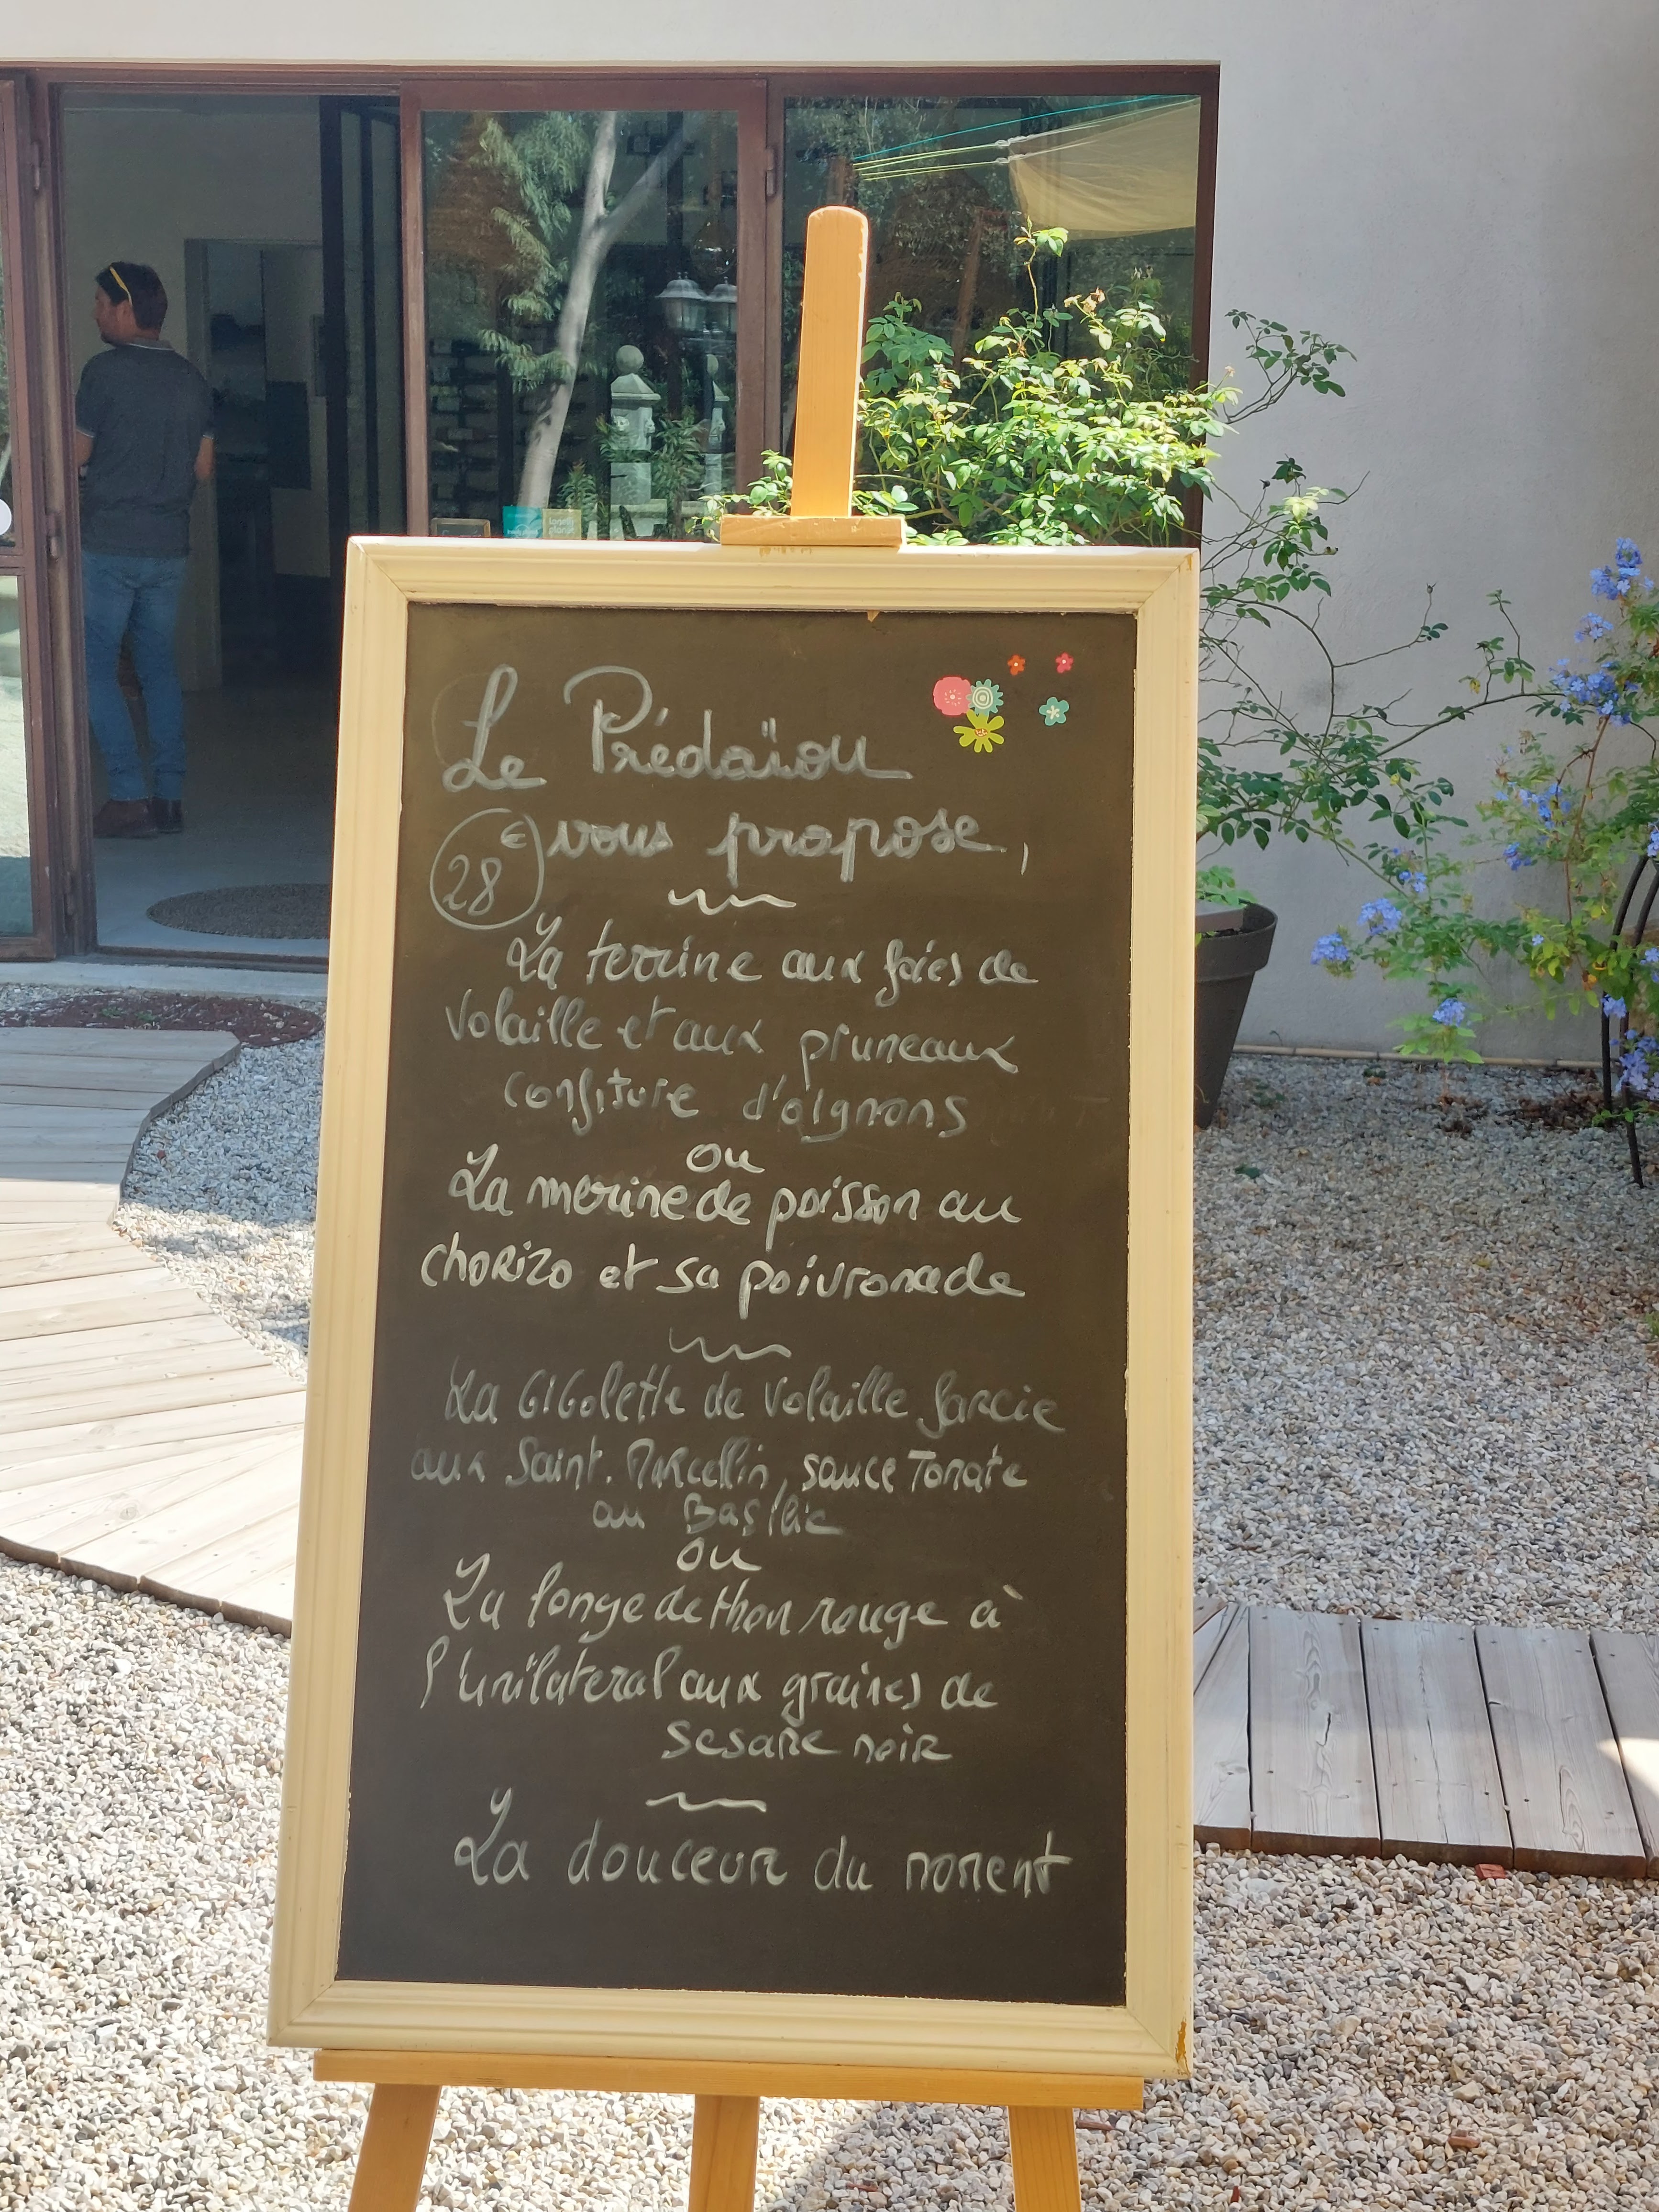 Le Prédaïou
28€ vous propose,
La terrine aux foies de
Volaille et aux pruneaux
confiture d'oignons
ou
La merine de poisson au
chorizo et sa poivronade
La Gigolette de Volaille farcie
aux Saint. Marcellin, sauce Tomate
au Basilic
ou
La longe de thon rouge à
l'unilateral aux graines de
sesame noir
La douceur du moment